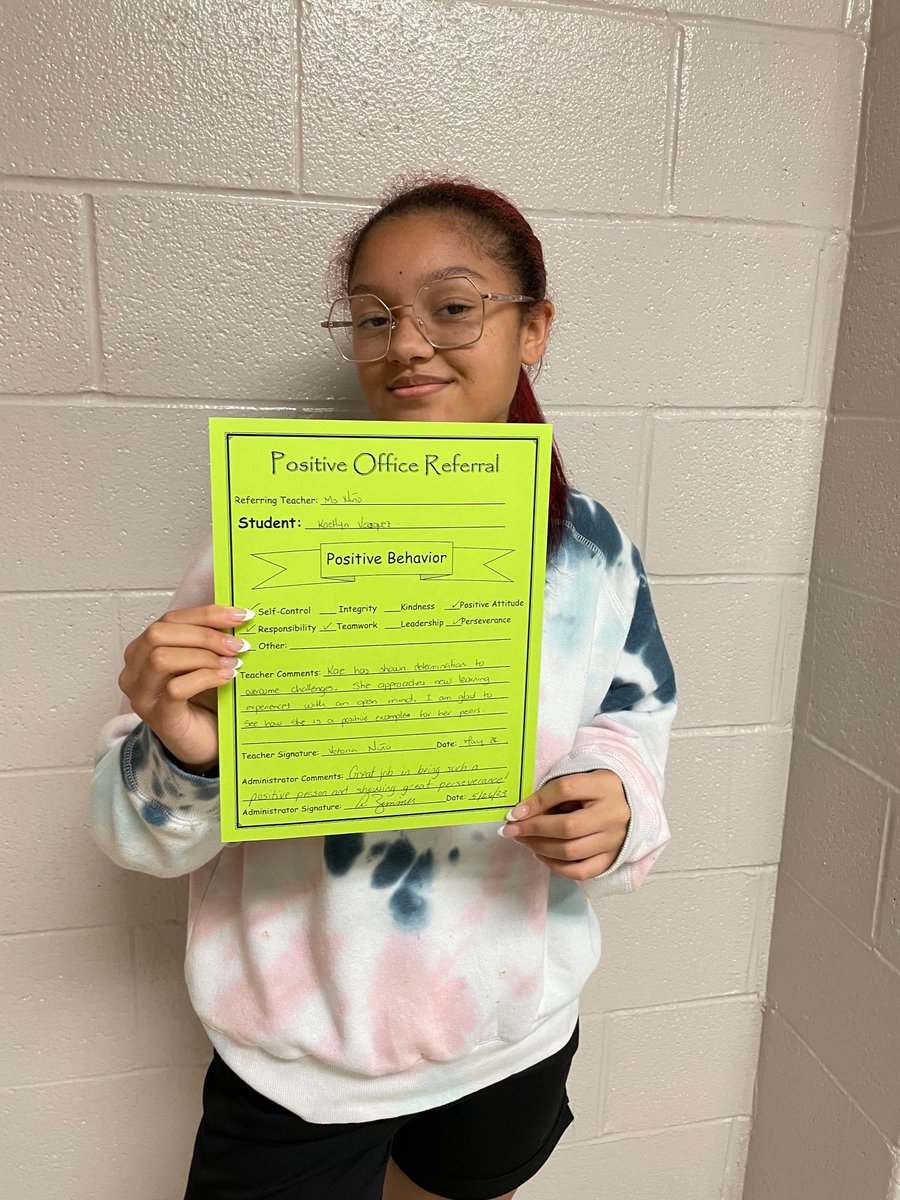 Positive Office Referral
Referring Teacher: Ms Niño
Student: Kaetlyn Vazquez
Positive Behavior
✓ Self-Control ___ Integrity ___ Kindness ✓ Positive Attitude
✓ Responsibility ✓ Teamwork ___ Leadership ✓ Perseverance
___ Other:
Teacher Comments: Kae has shown determination to
overcome challenges. She approaches new learning
experiences with an open mind. I am glad to
see how she is a positive example for her peers.
Teacher Signature: Victoria Niño Date: May 26
Administrator Comments: Great job in being such a
positive person and showing great perseverance!
Administrator Signature: Date: 5/26/23